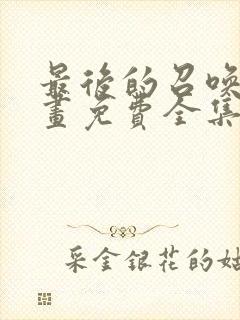 最後的召喚
畫免費全集
采金銀花的姑